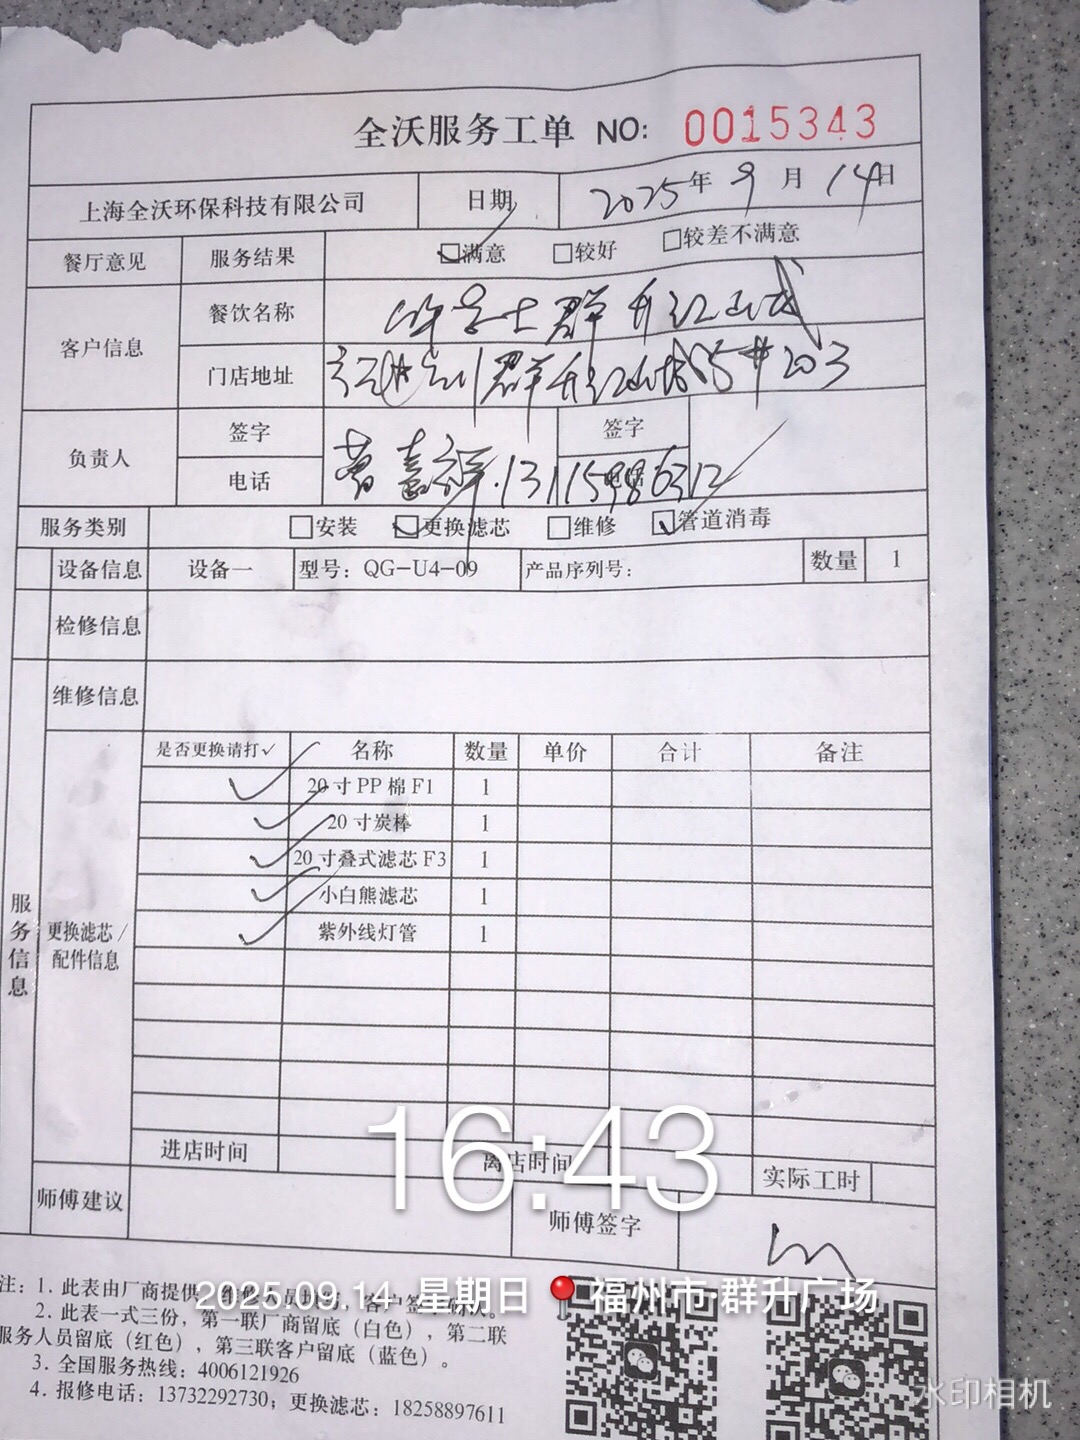 全沃服务工单 NO: 0015343
上海全沃环保科技有限公司 日期 2025年 9 月 14日
餐厅意见 服务结果 ☑满意 □较好 □较差不满意
客户信息 餐饮名称 群升江山城
门店地址 群升江山城 203
负责人 签字 签字
电话 13115986312
服务类别 □安装 ☑更换滤芯 □维修 ☑管道消毒
设备信息 设备一 型号：QG-U4-09 产品序列号： 数量 1
检修信息
维修信息
服务信息
更换滤芯/
配件信息
是否更换请打✓ 名称 数量 单价 合计 备注
✓ 20寸PP棉F1 1
✓ 20寸炭棒 1
✓ 20寸叠式滤芯F3 1
✓ 小白熊滤芯 1
✓ 紫外线灯管 1
进店时间 离店时间 实际工时
16:43
师傅建议 师傅签字
注：1. 此表由厂商提供
2025.09.14 星期日 福州市·群升广场
2. 此表一式三份，第一联厂商留底（白色），第二联
服务人员留底（红色），第三联客户留底（蓝色）。
3. 全国服务热线：4006121926
4. 报修电话：13732292730；更换滤芯：18258897611
水印相机